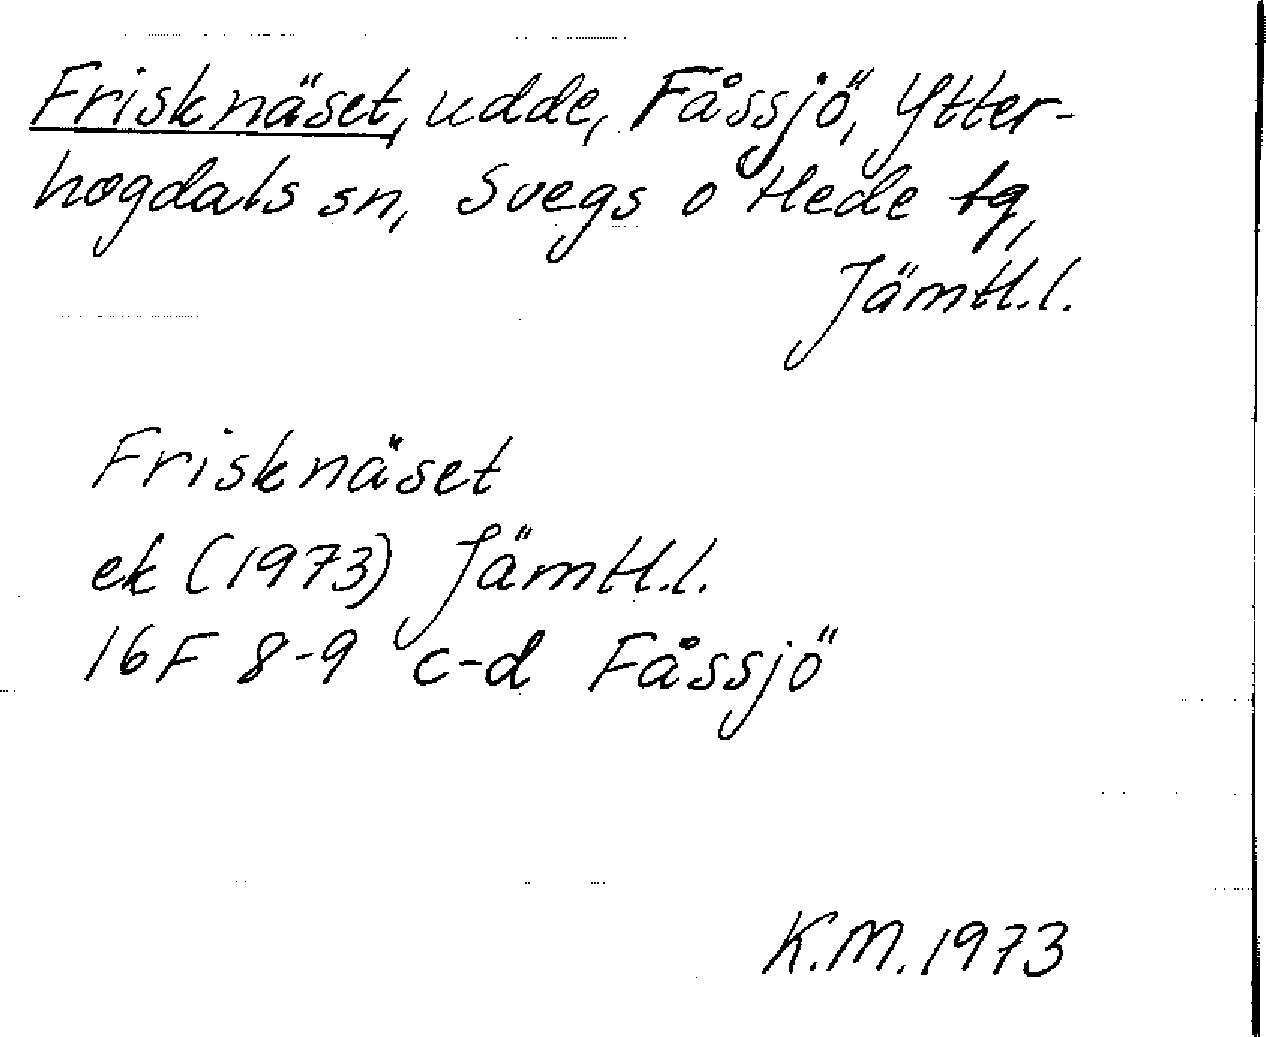 Frisknäset, udde, Fåssjö, Ytter-
hogdals sn, Svegs o Hede tg,
Jämtl.l.
Frisknäset
ek (1973) Jämtl.l.
16F 8-9 c-d Fåssjö
K.M. 1973